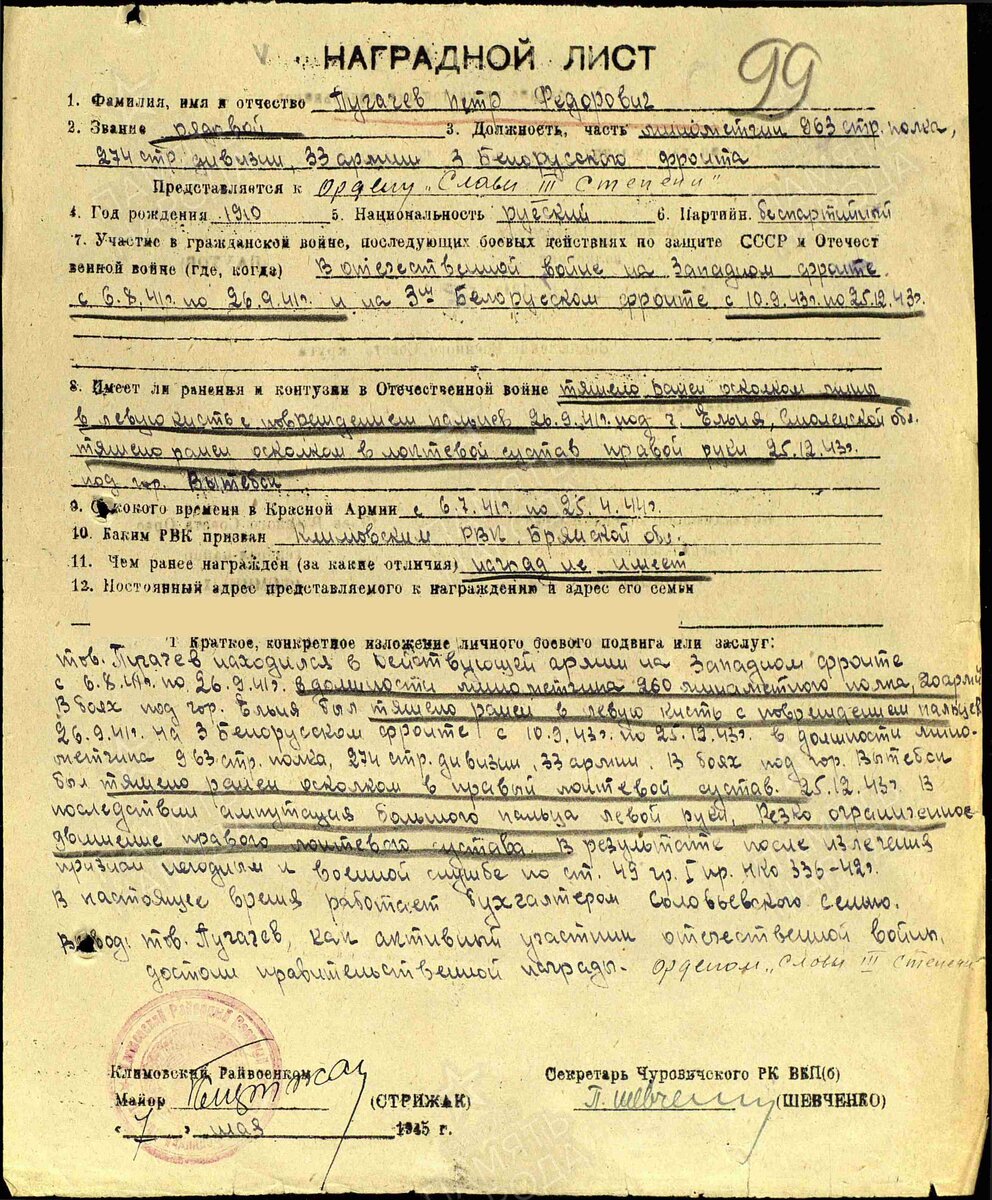 НАГРАДНОЙ ЛИСТ
99
1. Фамилия, имя и отчество Пугачев Петр Федорович
2. Звание рядовой 3. Должность, часть минометчик 963 стр. полка,
274 стр. дивизии, 33 армии 3 Белорусского фронта
Представляется к ордену „Славы III степени"
4. Год рождения 1910 5. Национальность русский 6. Партийн. беспартийный
7. Участие в гражданской войне, последующих боевых действиях по защите СССР и Отечест
венной войне (где, когда) В отечественной войне на Западном фронте
с 6.8.41г. по 26.9.41г. и на 3ем Белорусском фронте с 10.9.43г. по 25.12.43г.
8. Имеет ли ранения и контузии в Отечественной войне тяжело ранен осколком мины
в левую кисть с повреждением пальцев 26.9.41г. под г. Ельня, Смоленской обл.
тяжело ранен осколком в локтевой сустав правой руки 25.12.43г.
под гор. Вытебск
9. С какого времени в Красной Армии с 6.7.41г. по 25.4.44г.
10. Каким РВК призван Климовским РВК, Брянской обл.
11. Чем ранее награжден (за какие отличия) наград не имеет
12. Постоянный адрес представляемого к награждению и адрес его семьи
1 Краткое, конкретное изложение личного боевого подвига или заслуг:
тов. Пугачев находился в действующей армии на Западном фронте
с 6.8.41г. по 26.9.41г. в должности минометчика 260 минометного полка, 20 армии
В боях под гор. Ельня был тяжело ранен в левую кисть с повреждением пальцев
26.9.41г. На 3 Белорусском фронте с 10.9.43г. по 25.12.43г. в должности мино-
метчика 963 стр. полка, 274 стр. дивизии, 33 армии. В боях под гор. Вытебск
был тяжело ранен осколком в правый локтевой сустав. 25.12.43г. В
последствии ампутация большого пальца левой руки, Резко ограниченное
движение правого локтевого сустава. В результате после излечения
признан негодным к военной службе по ст. 49 гр. I пр. НКО 336-42г.
В настоящее время работает бухгалтером Соловьевского сельпо.
Вывод: тов. Пугачев, как активный участник отечественной войны,
достоин правительственной награды. орденом „Славы III степени"
Климовский Райвоенком
Майор (СТРИЖАК)
„7" мая 1945 г.
Секретарь Чуровичского РК ВКП(б)
П. Шевченко (ШЕВЧЕНКО)